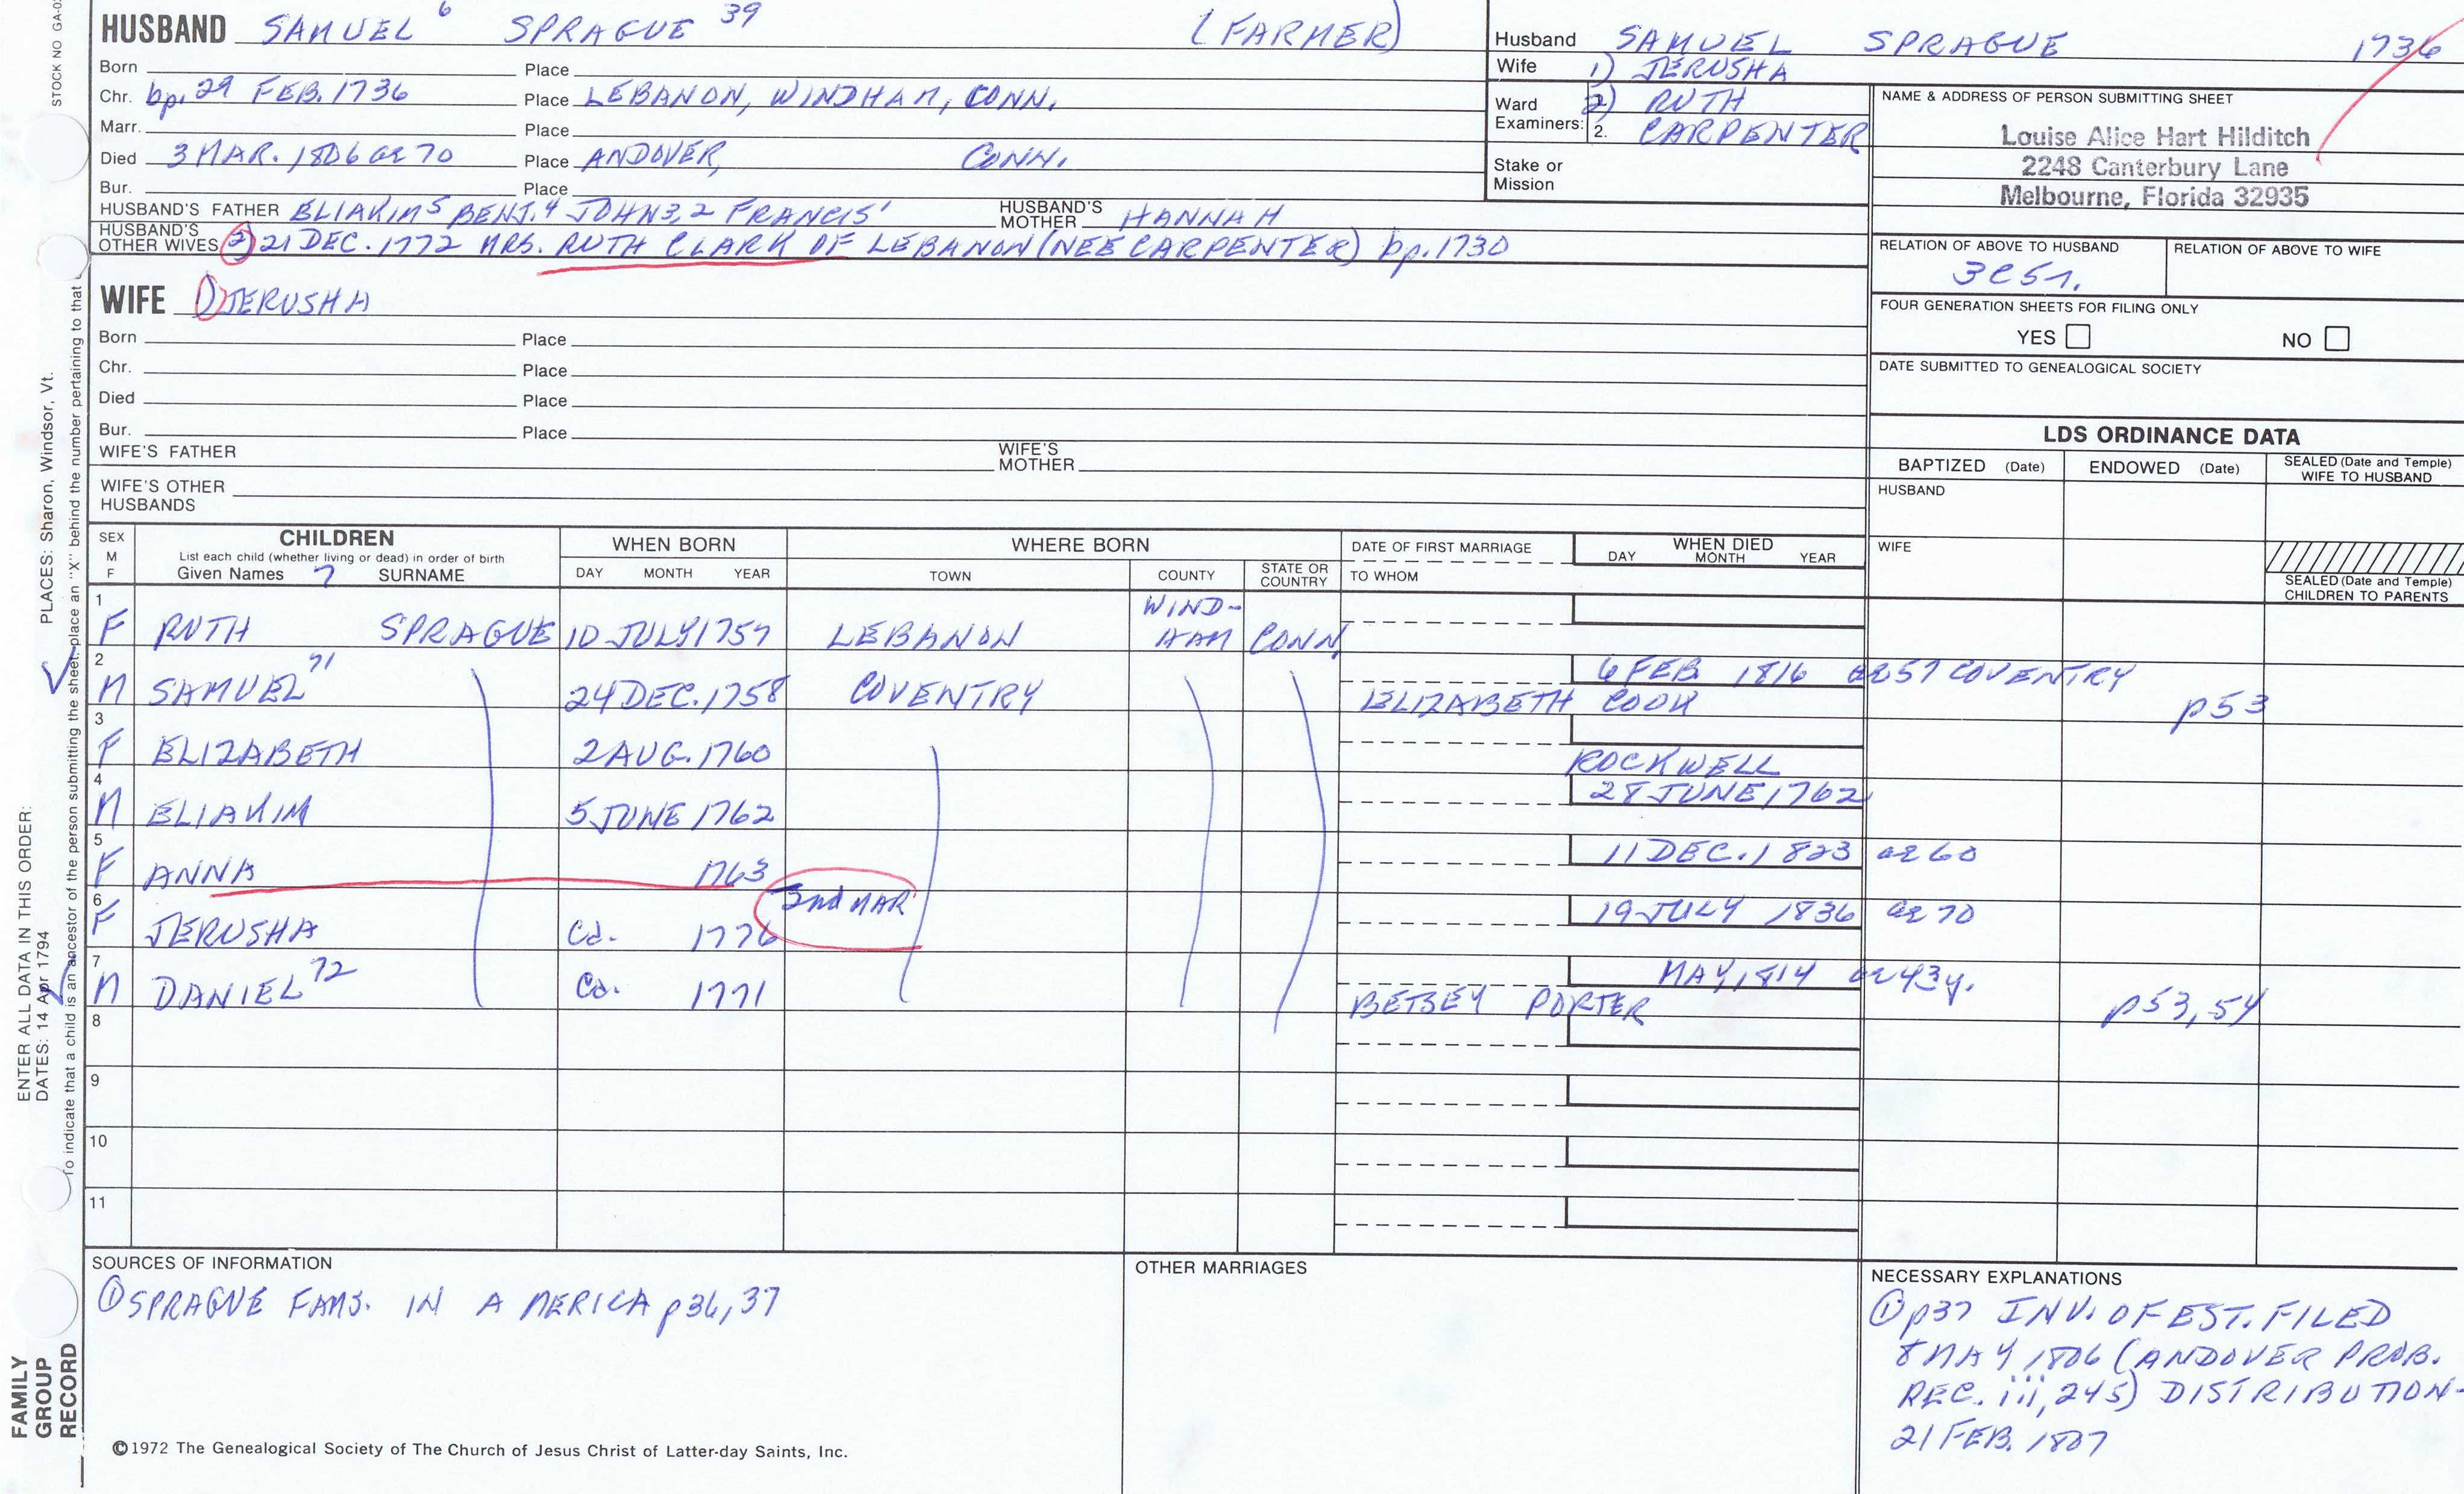 STOCK NO GA-0
HUSBAND SAMUEL 6 SPRAGUE 39 (FARMER)
Born Place
Chr. bp. 29 FEB. 1736 Place LEBANON, WINDHAM, CONN.
Marr. Place
Died 3 MAR. 1806 ae 70 Place ANDOVER, CONN.
Bur. Place
HUSBAND'S FATHER ELIAKIM5 BENJ.4 JOHN3,2 FRANCIS1 HUSBAND'S MOTHER HANNAH
HUSBAND'S OTHER WIVES 2) 21 DEC. 1772 MRS. RUTH CLARK OF LEBANON (NEE CARPENTER) bp. 1730
Husband SAMUEL SPRAGUE 1736
Wife 1) JERUSHA
Ward Examiners: 2) RUTH
2. CARPENTER
Stake or Mission
NAME & ADDRESS OF PERSON SUBMITTING SHEET
Louise Alice Hart Hilditch
2248 Canterbury Lane
Melbourne, Florida 32935
RELATION OF ABOVE TO HUSBAND RELATION OF ABOVE TO WIFE
3C5r.
FOUR GENERATION SHEETS FOR FILING ONLY
YES NO
DATE SUBMITTED TO GENEALOGICAL SOCIETY
WIFE 1) JERUSHA
Born Place
Chr. Place
Died Place
Bur. Place
WIFE'S FATHER WIFE'S MOTHER
WIFE'S OTHER HUSBANDS
LDS ORDINANCE DATA
BAPTIZED (Date) ENDOWED (Date) SEALED (Date and Temple) WIFE TO HUSBAND
HUSBAND
WIFE
SEALED (Date and Temple) CHILDREN TO PARENTS
SEX M F
CHILDREN
List each child (whether living or dead) in order of birth
Given Names 7 SURNAME
WHEN BORN
DAY MONTH YEAR
WHERE BORN
TOWN COUNTY STATE OR COUNTRY
DATE OF FIRST MARRIAGE
TO WHOM
WHEN DIED
DAY MONTH YEAR
1 F RUTH SPRAGUE 10 JULY 1757 LEBANON WIND-HAM CONN.
2 M SAMUEL 71 24 DEC. 1758 COVENTRY 6 FEB. 1816 ae 57 COVENTRY
ELIZABETH COOK p53
3 F ELIZABETH 2 AUG. 1760
ROCKWELL
4 M ELIAKIM 5 JUNE 1762 28 JUNE 1762
5 F ANNA 1763 11 DEC. 1823 ae 60
2nd MAR
6 F JERUSHA Ca. 1776 19 JULY 1836 ae 70
7 M DANIEL 72 Ca. 1771 MAY, 1814 ae 43y.
BETSEY PORTER p53, 54
8
9
10
11
SOURCES OF INFORMATION
① SPRAGUE FAMS. IN AMERICA p36, 37
OTHER MARRIAGES
NECESSARY EXPLANATIONS
① p37 INV. OF EST. FILED
8 MAY 1806 (ANDOVER PROB.
REC. iii, 245) DISTRIBUTION-
21 FEB. 1807
©1972 The Genealogical Society of The Church of Jesus Christ of Latter-day Saints, Inc.
FAMILY GROUP RECORD
ENTER ALL DATA IN THIS ORDER:
DATES: 14 Apr 1794 PLACES: Sharon, Windsor, Vt.
To indicate that a child is an ancestor of the person submitting the sheet, place an "X" behind the number pertaining to that